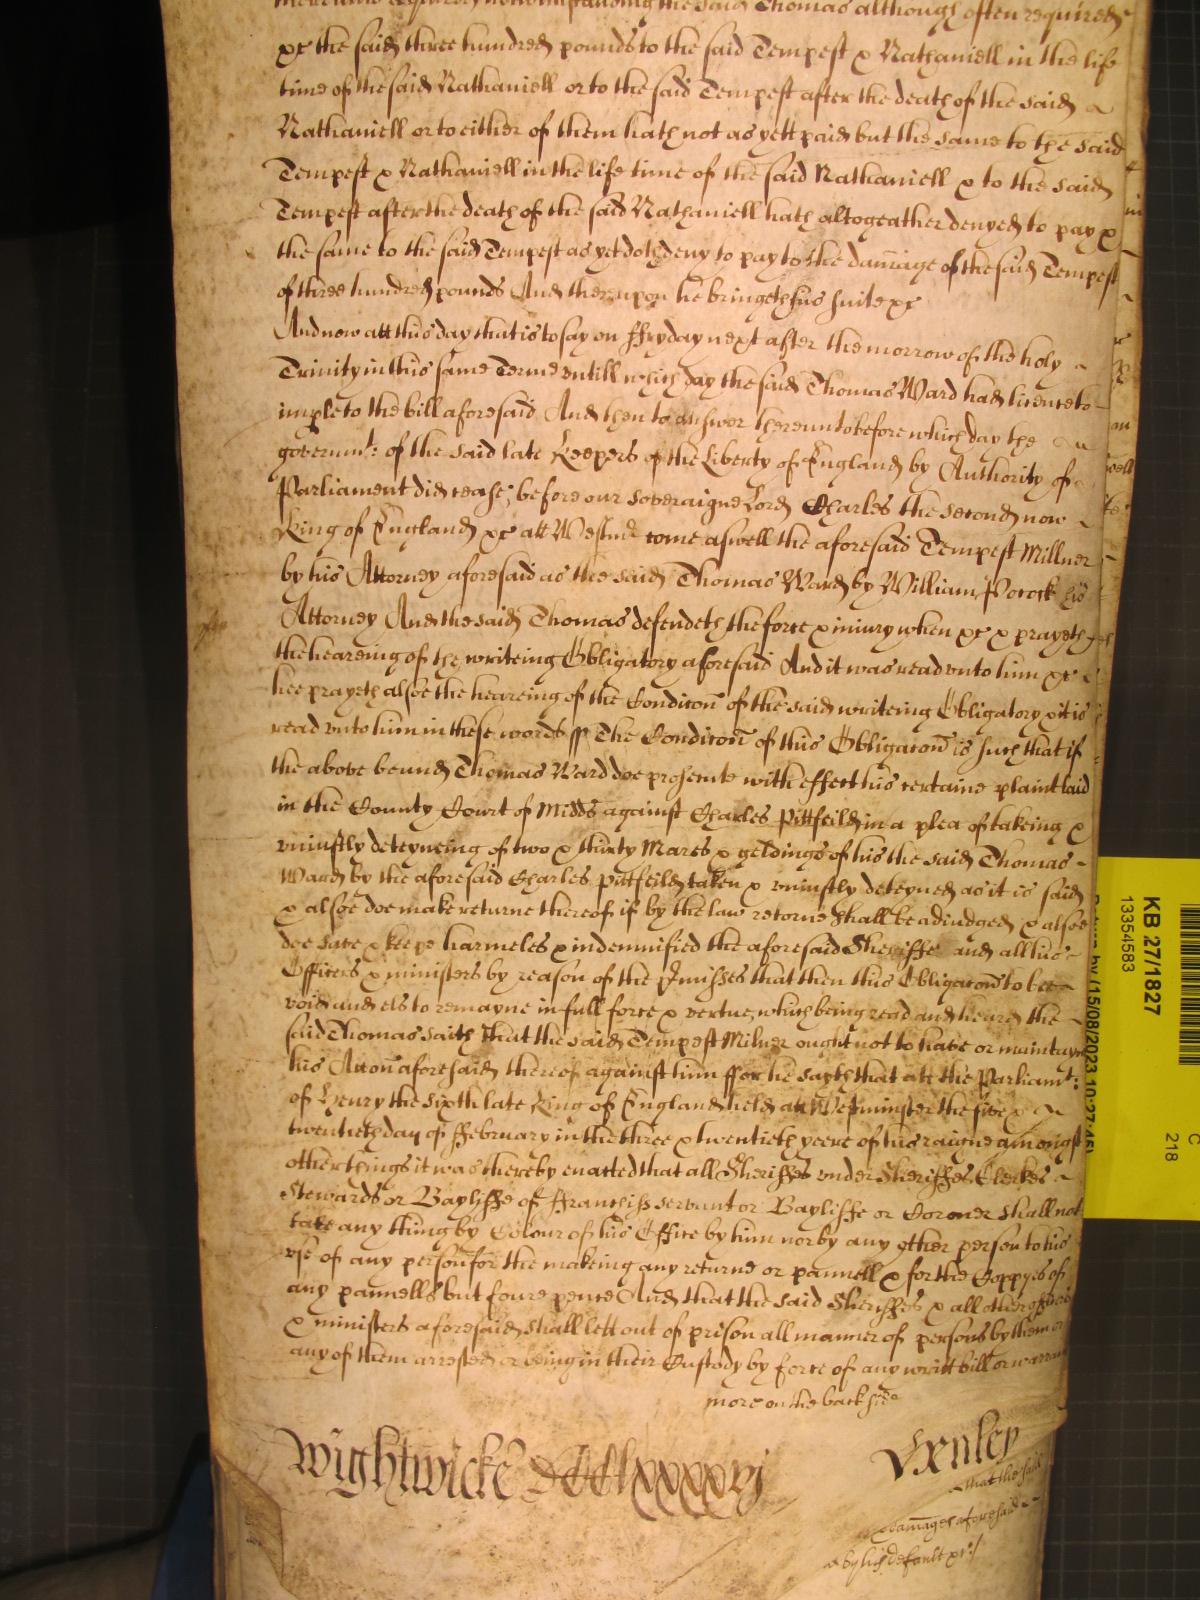 thereunto required notwithstanding the said Thomas although often required
&c the said three hundred pounds to the said Tempest & Nathaniell in the life
time of the said Nathaniell or to the said Tempest after the death of the said
Nathaniell or to either of them hath not as yett paid but the same to the said
Tempest & Nathaniell in the life time of the said Nathaniell & to the said
Tempest after the death of the said Nathaniell hath altogeather denyed to pay &
the same to the said Tempest as yet doth deny to pay to the damage of the said Tempest
of three hundred pounds And thereupon he bringeth his suite &c
And now att this day that is to say on ffryday next after the morrow of the holy
Trinity in this same Terme untill which day the said Thomas Ward had licence to
imple to the bill aforesaid And then to answer thereunto before which day the
governmt: of the said late Keepers of the Liberty of England by Authority of
Parliament did cease; before our soveraigne Lord Charles the second now
King of England &c att Westmr come aswell the aforesaid Tempest Millner
by his Attorney aforesaid as the said Thomas Ward by William Pocock his
Attorney And the said Thomas defendeth the force & iniury when &c & prayeth
the heareing of the writeing Obligatory aforesaid And it was read unto him &c
hee prayeth alsoe the heareing of the Condicon of the said writeing Obligatory & it is
read unto him in these words ss The Condicon of this Obligacon is such that if
the above bound Thomas Ward doe prosecute with effect his certaine plaint laid
in the County Court of Midds against Charles Pittfeild in a plea of takeing &
uniustly deteyneing of two & thirty Mares & geldings of his the said Thomas
Ward by the aforesaid Charles Pittfeild taken & uniustly deteyned as it is said
& alsoe doe make returne thereof if by the law retorne shall be adiudged & alsoe
doe save & keepe harmeles & indemnified the aforesaid Sheriffe and all his
Officers & ministers by reason of the pmisses that then this Obligacon to bee
void and els to remayne in full force & vertue, which being read and heard the
said Thomas saith that the said Tempest Milner ought not to have or maintayne
his Accon aforesaid thereof against him ffor he sayth that att the Parliamt:
of Henry the sixth late King of England held att Westminster the five &
twentieth day of ffebruary in the three & twentieth yeere of his raigne amongst
other things it was thereby enacted that all Sheriffes under Sheriffes Clerkes
Stewards or Bayliffe of ffranchiss servant or Bayliffe or Coroner shall not
take any thing by Colour of his Office by him nor by any other person to his
use of any person for the makeing any returne or pannell & for the Coppyes of
any pannells but foure pence And that the said Sheriffes & all other officers
& ministers aforesaid shall lett out of prison all manner of persons by them or
any of them arrested or being in their Custody by force of any writt bill or warrant
more on the back side
Wightwicke DCClxxxxvj
Uxnley
that the said
& damages aforesaid
by his default &c:/
KB 27/1827
13354583
218
(15/08/2023 10:27:45)